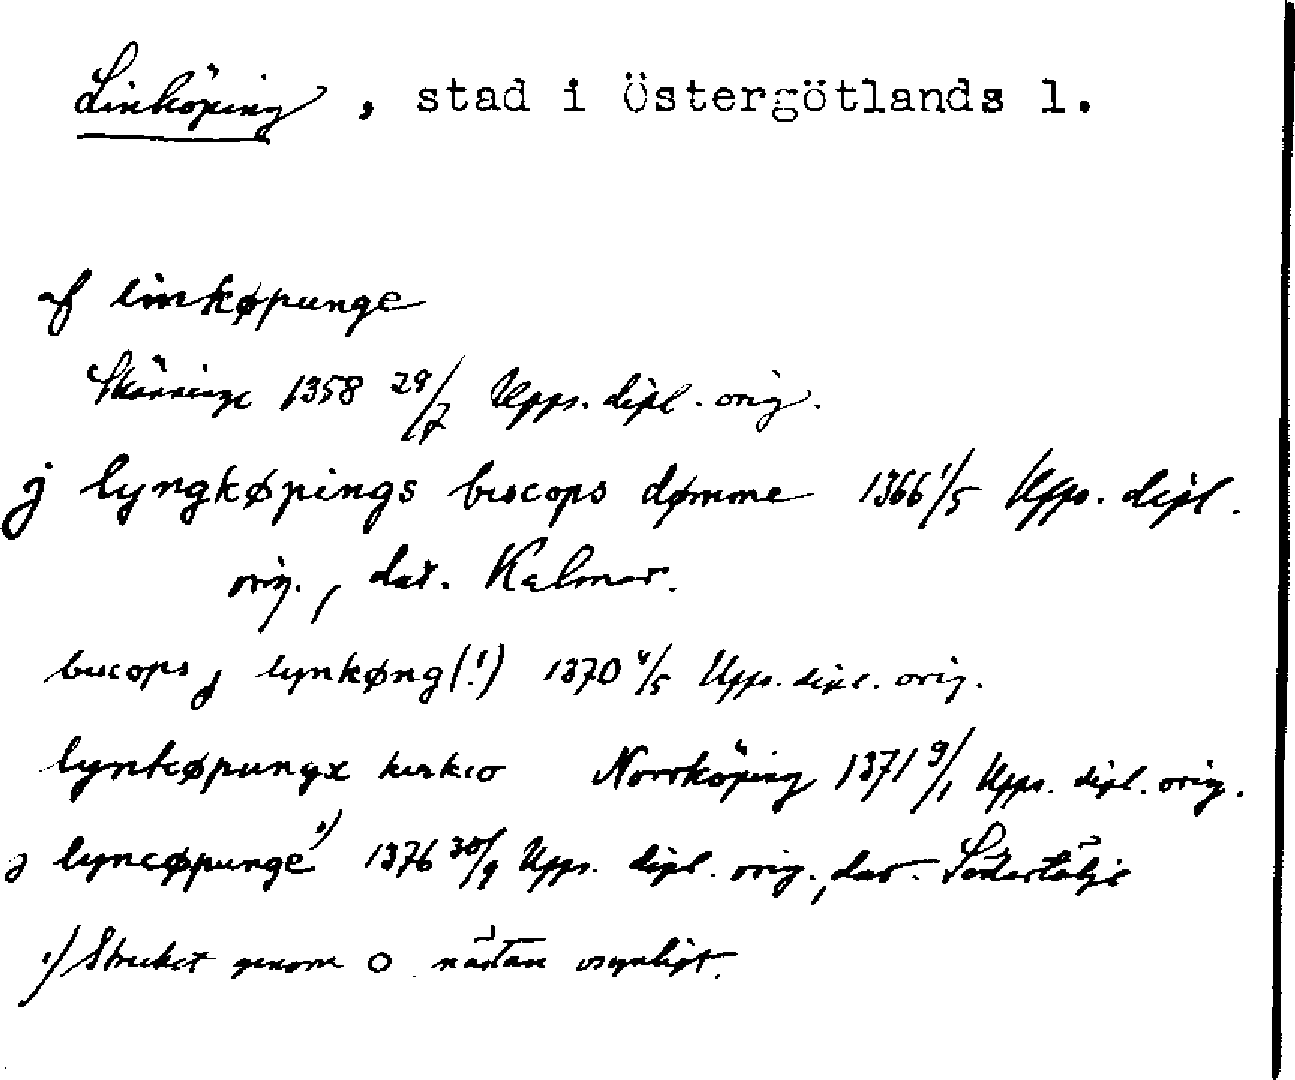 Linköping, stad i Östergötlands l.
af linkøpunge
Skänninge 1358 29/7 Upps. dipl. orig.
j lyngkøpings biscops dømme 1366 1/5 Upps. dipl.
orig., dat. Kalmar.
biscops j lynkøng(!) 1370 4/5 Upps. dipl. orig.
lynkøpungx kirkio Norrköping 1371 9/1 Upps. dipl. orig.
j lyncøpunge¹) 1376 30/9 Upps. dipl. orig., dat. Södertälje
¹) Strecket genom o nästan osynligt.